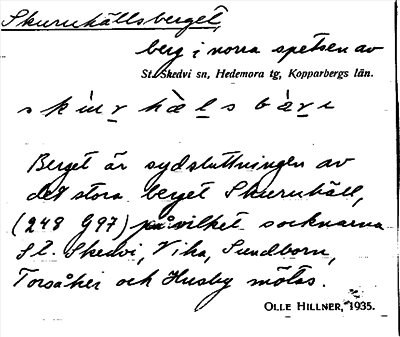 Skuruhällsberget,
berg i norra spetsen av
St. Skedvi sn, Hedemora tg, Kopparbergs län.
Berget är sydsluttningen av
det stora berget Skuruhäll,
(248 G97) på vilket socknarna
St. Skedvi, Vika, Sundborn,
Torsåker och Husby mötas.
OLLE HILLNER, 1935.